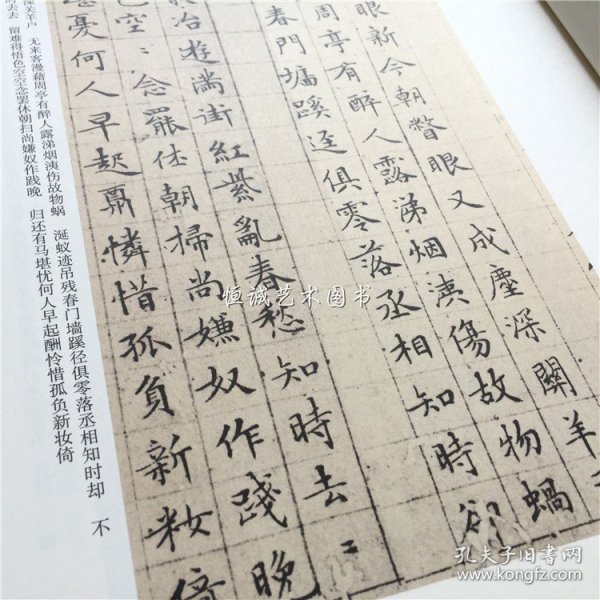 眼新今朝瞥眼又成塵深關羊
周亭有醉人露涕烟洟傷故物蝸
春門墻蹊逕俱零落丞相知時卻
冶遊滿街紅紫亂春愁知時去〻
空〻念罷休朝掃尚嫌奴作踐晚
堪憂何人早起酬憐惜孤負新妝倚
深关羊户 无来客漫藉周亭有醉人露涕烟洟伤故物蜗 涎蚁迹吊残春门墙蹊径俱零落丞相知时却 不
时去去 留难得悟色空空念罢休朝扫尚嫌奴作践晚 归还有马堪忧何人早起酬怜惜孤负新妆倚
恒诚艺术图书
孔夫子旧书网
www.kongfz.com